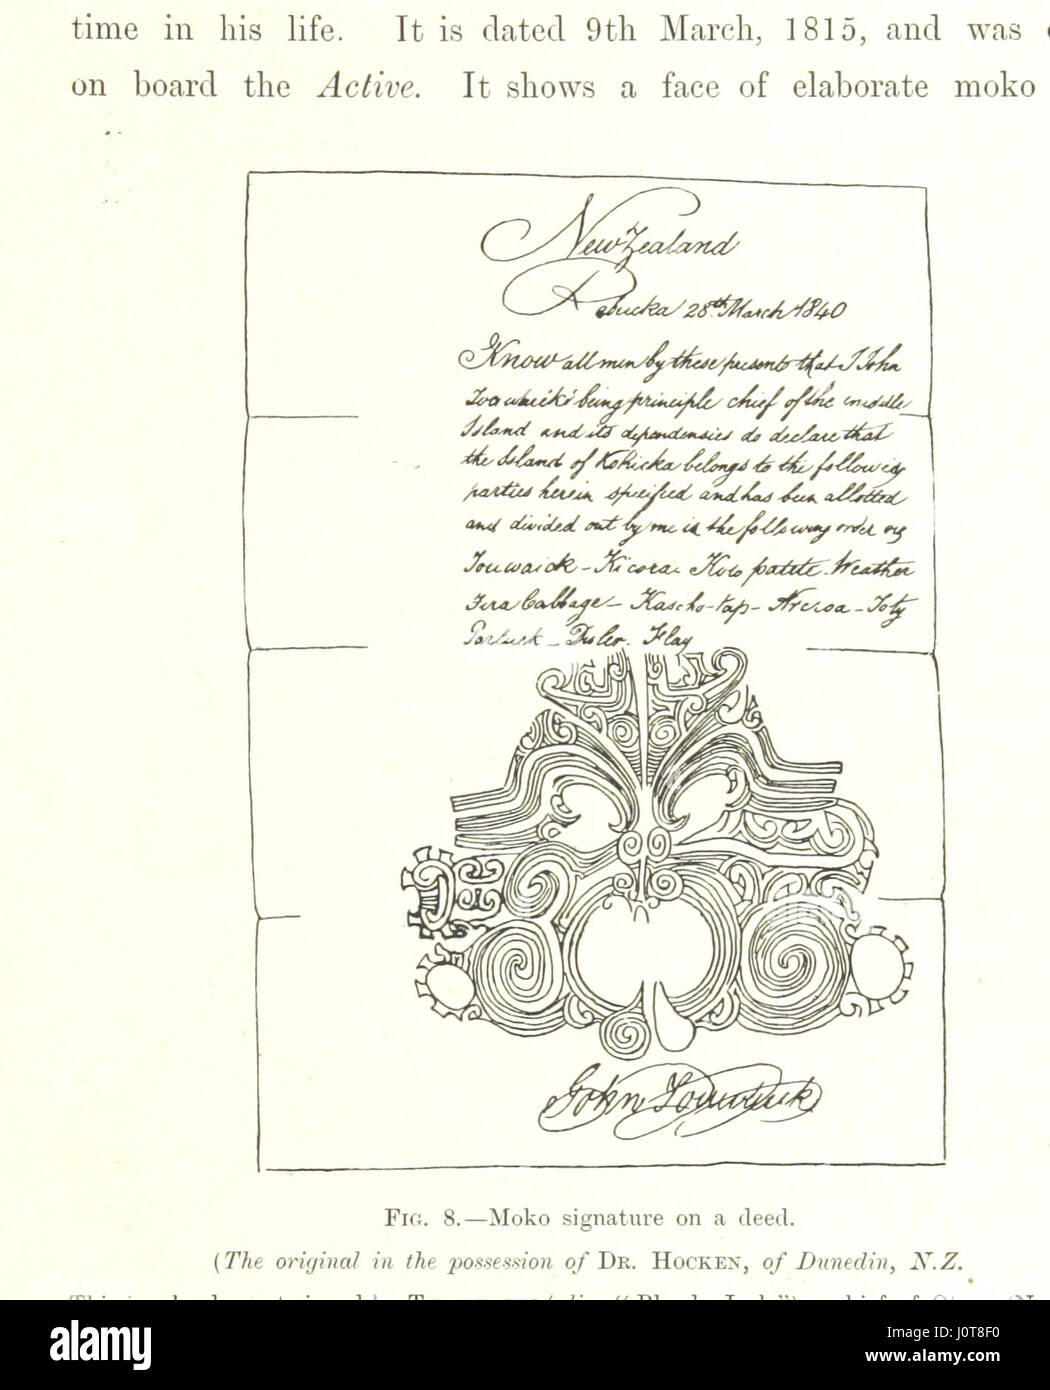 time in his life. It is dated 9th March, 1815, and was
on board the Active. It shows a face of elaborate moko
New Zealand
28th March 1840
Know all men by these presents that I John
being principle chief of the middle
Island and its dependensies do declare that
the Island of Kohicka belongs to the following
parties herein specified and has been allotted
and divided out by me in the following order viz
Touwaick – Kicora – patite – Weather
Cabbage – Toty
Flay
John Touwaick
FIG. 8.—Moko signature on a deed.
(The original in the possession of DR. HOCKEN, of Dunedin, N.Z.
alamy
alamy
Image ID: J0T8F0
www.alamy.com